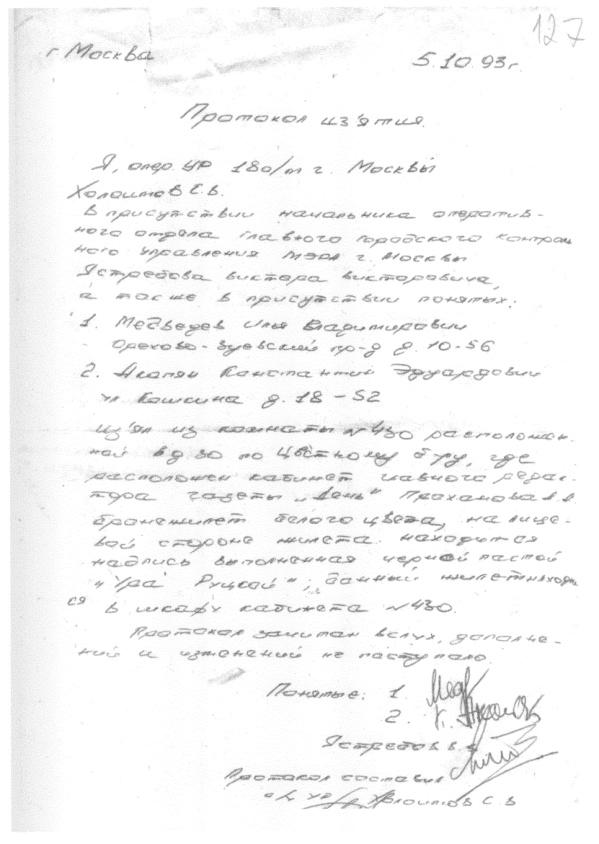 127
г Москва 5.10.93г.
Протокол из'ятия.
Я, опер. УР 18о/м г. Москвы
В присутствии начальника оператив-
ного отдела главного городского контрол
ного управления мэра г. Москвы
Ястребова Виктора Викторовича,
а также в присутствии понятых:
1. Медведев Илья Владимирович
Орехово-Зуевский пр-д д. 10-56
2. Акопян Константин Эдуардович
ул Кошкина д. 18-52
из'ял из комнаты №430 расположен.
ной в д 30 по Цветному б-ру, где
расположен кабинет главного редак-
тора газеты "День" Проханова А.А.
бронежилет белого цвета, на лице-
вой стороне жилета находится
надпись выполненная черной пастой
"Ура Руцкой"; данный жилет находи
ся в шкафу кабинета №430.
Протокол зачитан вслух, дополне-
ний и изменений не поступало.
Понятые: 1.
2. К.
Ястребов В.
Протокол составил